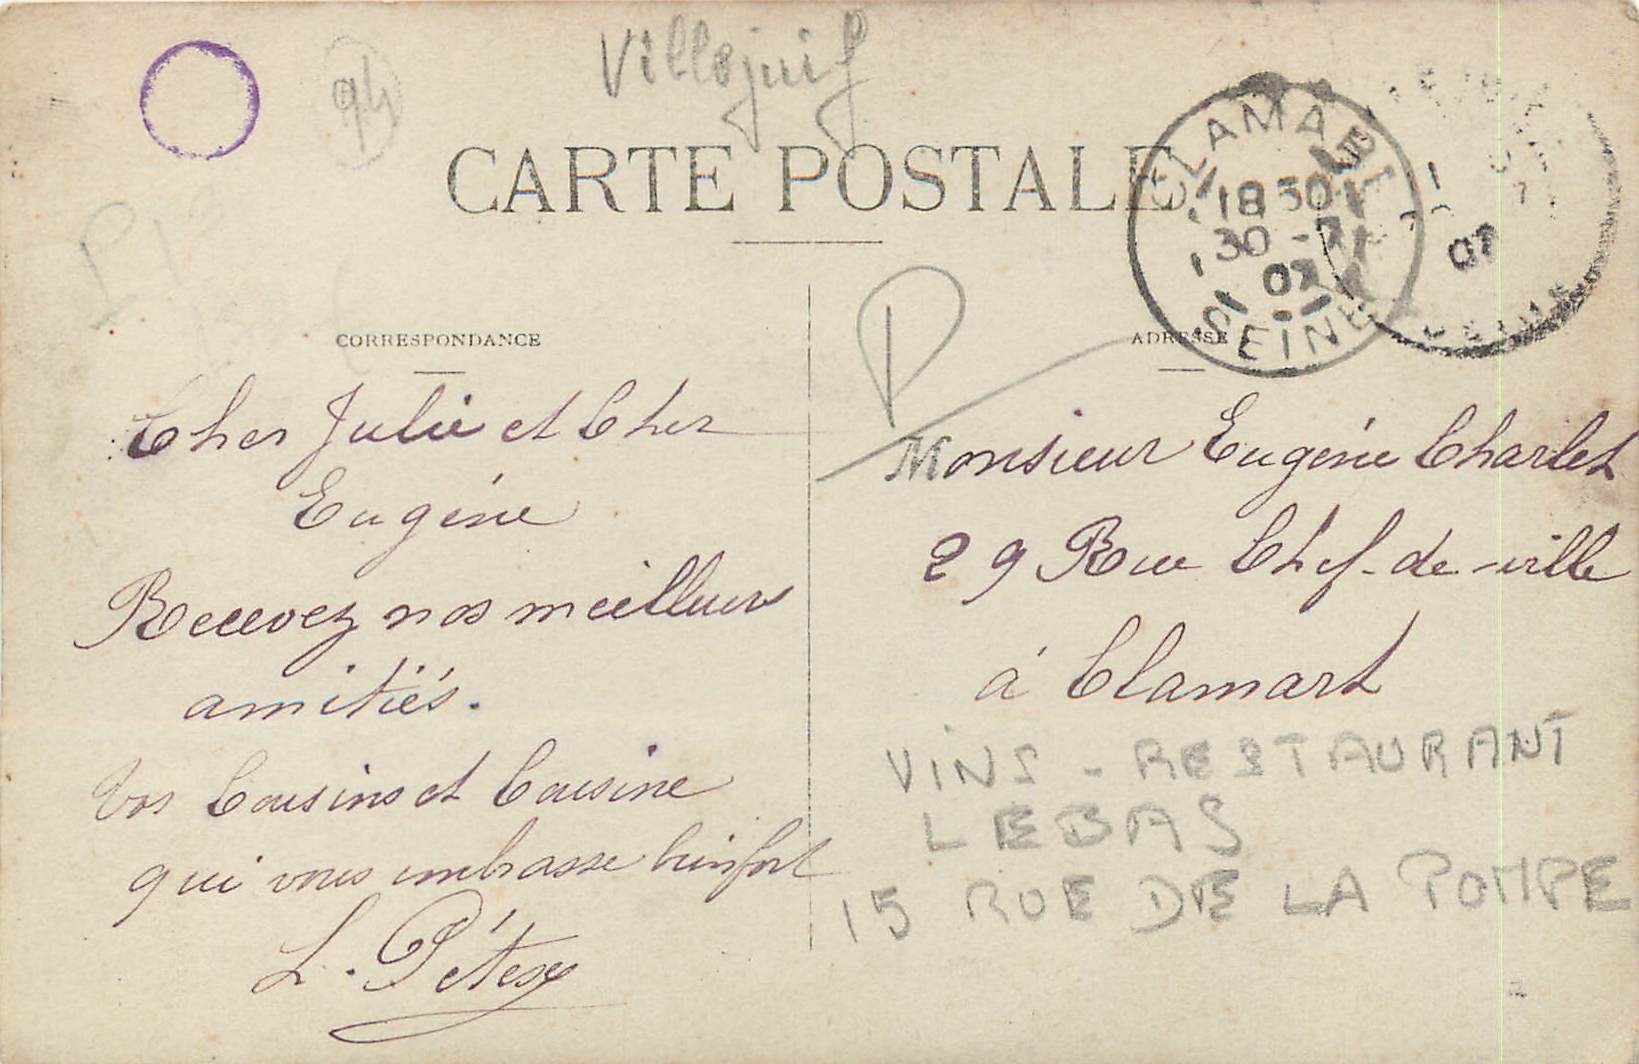 94
Villejuif
CARTE POSTALE
CLAMART
18 30
30 -7
07
SEINE
07
CORRESPONDANCE
ADRESSE
Cher Julie et Cher
Eugéne
Recevez nos meilleurs
amitiés.
Vos Cousins et Cousine
qui vous embrasse bien fort
L.
Monsieur Eugéne Charlet
29 Rue Chef-de-ville
à Clamart
VINS - RESTAURANT
LEBAS
15 RUE DE LA POMPE